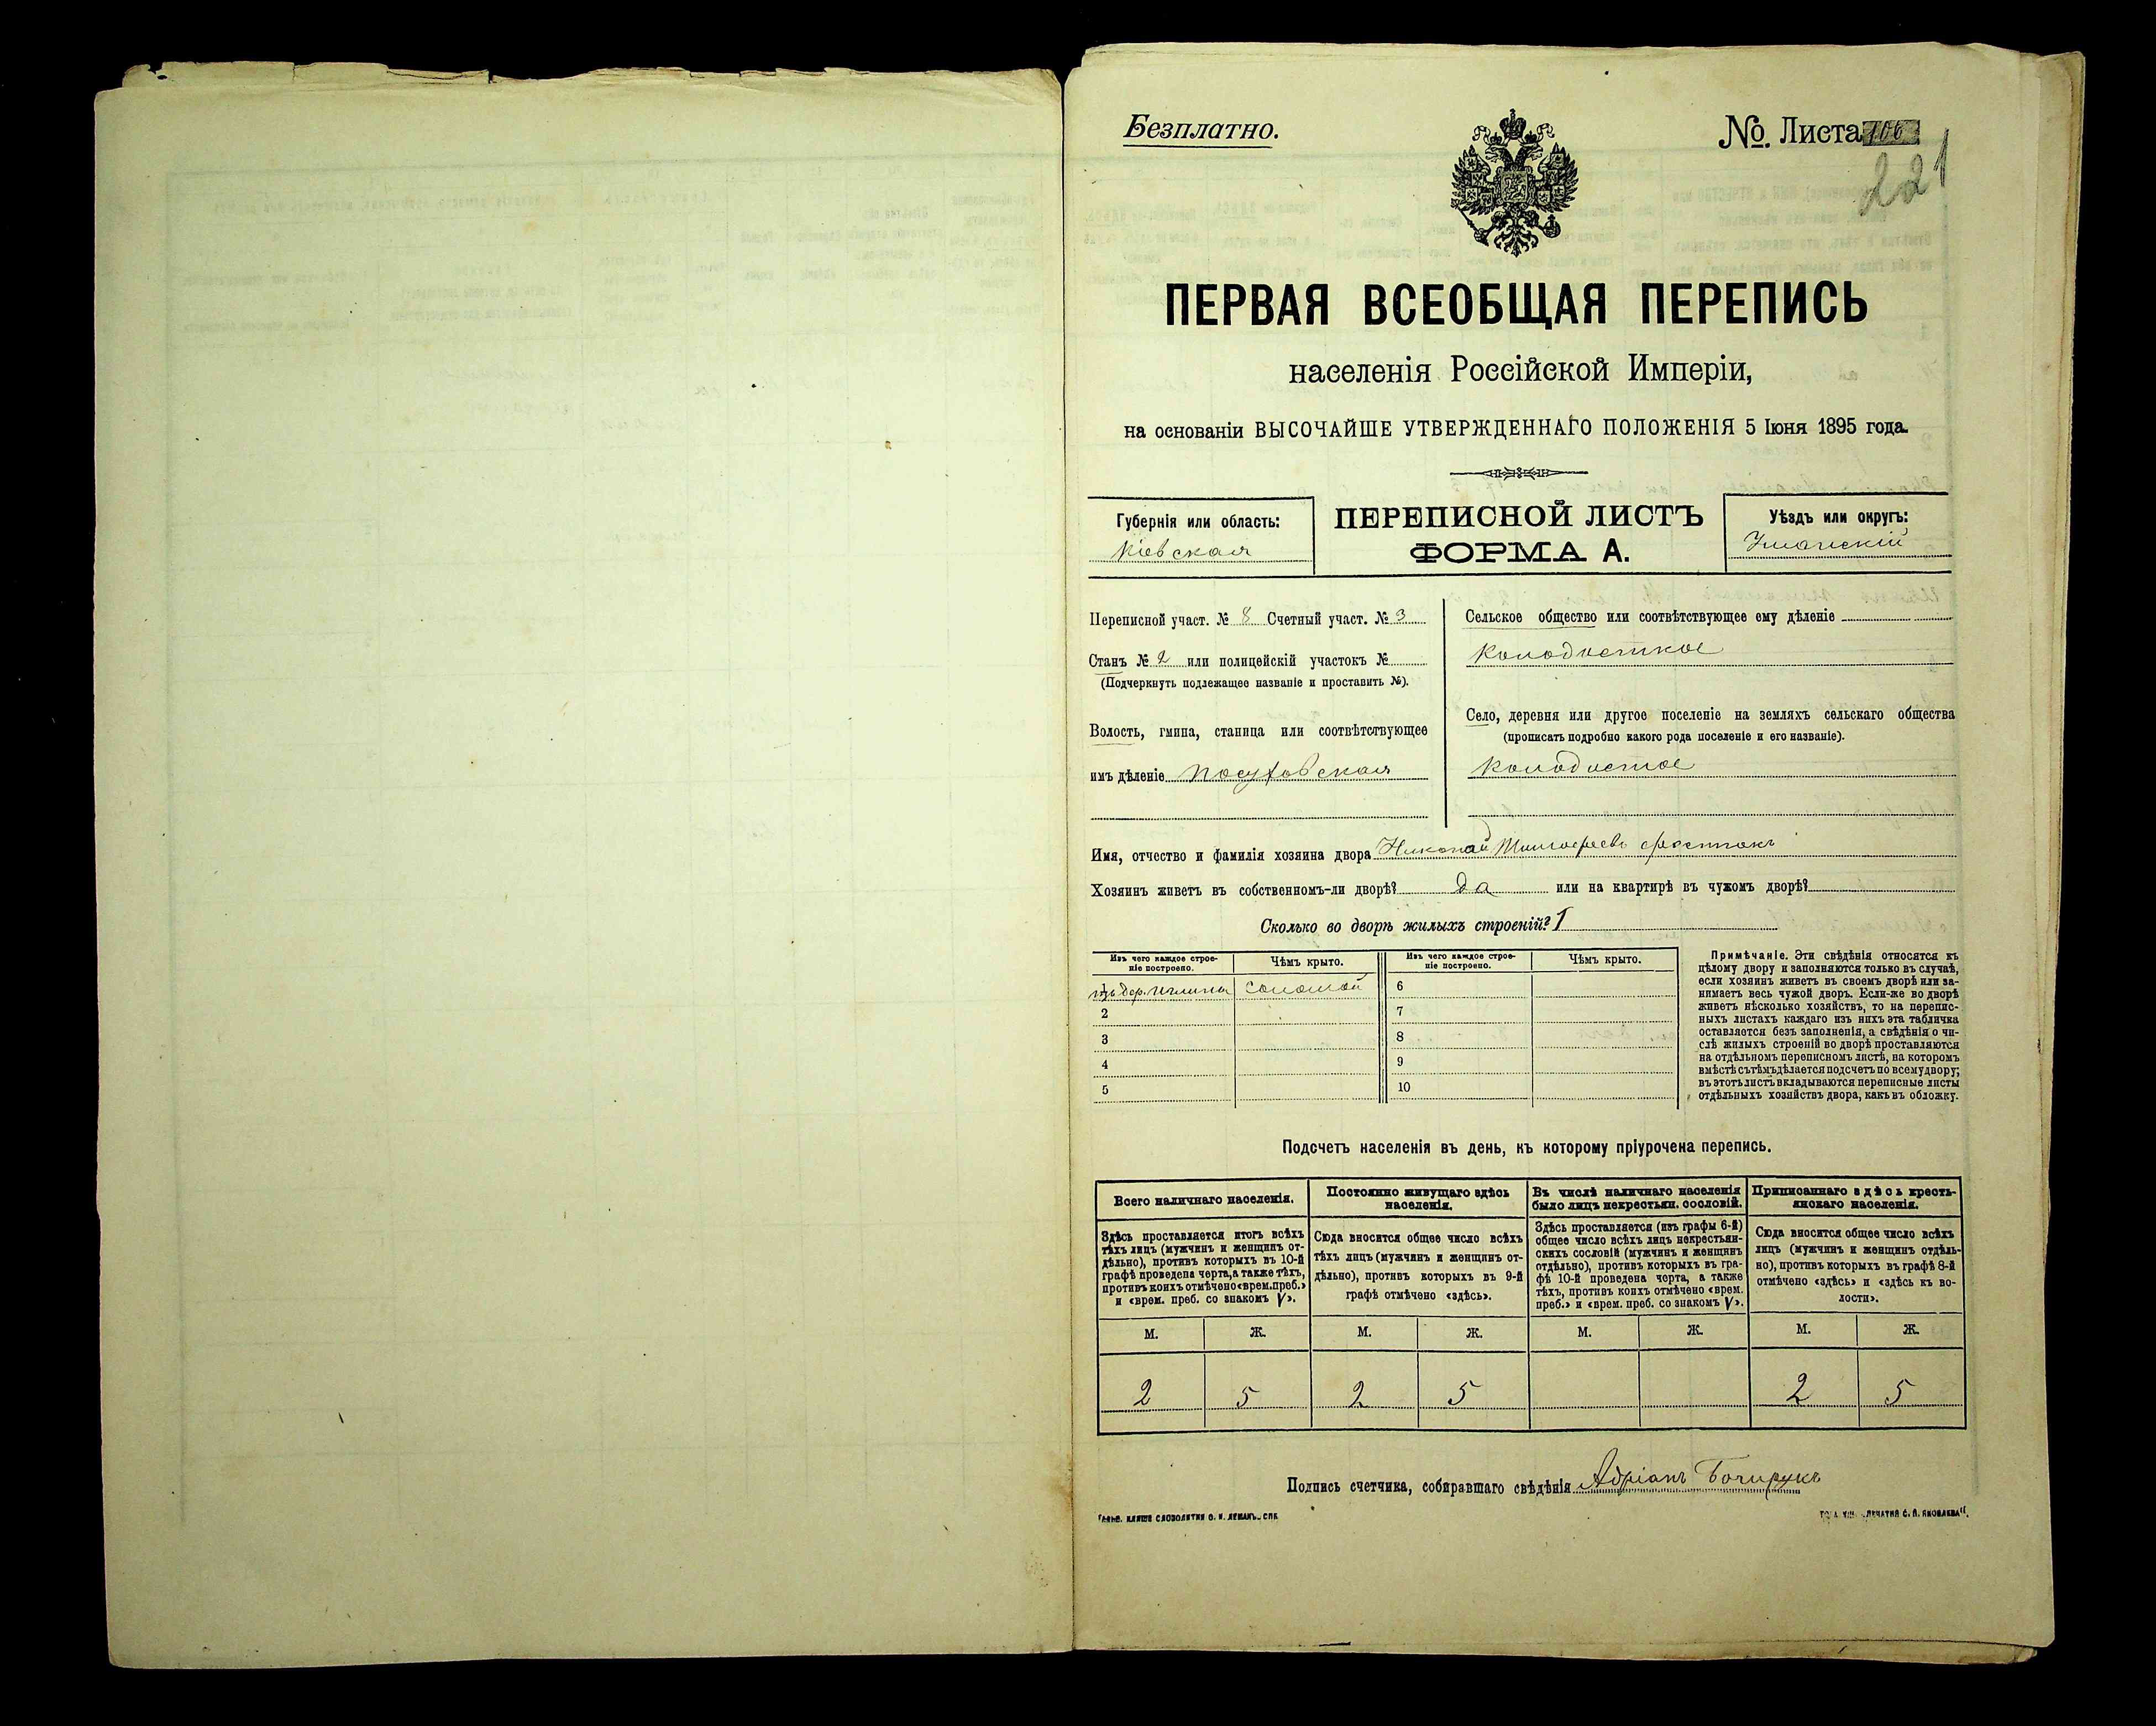 Безплатно.
№. Листа 106
221
ПЕРВАЯ ВСЕОБЩАЯ ПЕРЕПИСЬ
населенія Россійской Имперіи,
на основаніи ВЫСОЧАЙШЕ УТВЕРЖДЕННАГО ПОЛОЖЕНІЯ 5 Іюня 1895 года.
Губернія или область:
Кіевская
ПЕРЕПИСНОЙ ЛИСТЪ
ФОРМА А.
Уѣздъ или округъ:
Уманскій
Переписной участ. № 8 Счетный участ. № 3
Станъ № 2 или полицейскій участокъ №
(Подчеркнуть подлежащее названіе и проставить №).
Волость, гмина, станица или соотвѣтствующее
имъ дѣленіе Посуховская
Сельское общество или соотвѣтствующее ему дѣленіе
Колодисткое
Село, деревня или другое поселеніе на земляхъ сельскаго общества
(прописать подробно какого рода поселеніе и его названіе).
Колодистое
Имя, отчество и фамилія хозяина двора Николай Тимофеевъ
Хозяинъ живетъ въ собственномъ-ли дворѣ? да или на квартирѣ въ чужомъ дворѣ?
Сколько во дворѣ жилыхъ строеній? 1
Изъ чего каждое строе-
ніе построено.
Чѣмъ крыто.
Изъ чего каждое строе-
ніе построено.
Чѣмъ крыто.
изъ дер. и глины соломой 6
2 7
3 8
4 9
5 10
Примѣчаніе. Эти свѣдѣнія относятся къ
цѣлому двору и заполняются только въ случаѣ,
если хозяинъ живетъ въ своемъ дворѣ или за-
нимаетъ весь чужой дворъ. Если-же во дворѣ
живетъ нѣсколько хозяйствъ, то на перепис-
ныхъ листахъ каждаго изъ нихъ эта табличка
оставляется безъ заполненія, а свѣдѣнія о чи-
слѣ жилыхъ строеній во дворѣ проставляются
на отдѣльномъ переписномъ листѣ, на которомъ
вмѣстѣ съ тѣмъ дѣлается подсчетъ по всему двору;
въ этотъ листъ вкладываются переписные листы
отдѣльныхъ хозяйствъ двора, какъ въ обложку.
Подсчетъ населенія въ день, къ которому пріурочена перепись.
Всего наличнаго населенія.
Здѣсь проставляется итогъ всѣхъ
тѣхъ лицъ (мужчинъ и женщинъ от-
дѣльно), противъ которыхъ въ 10-й
графѣ проведена черта, а также тѣхъ,
противъ коихъ отмѣчено «врем. преб.»
и «врем. преб. со знакомъ V».
Постоянно живущаго здѣсь
населенія.
Сюда вносится общее число всѣхъ
тѣхъ лицъ (мужчинъ и женщинъ от-
дѣльно), противъ которыхъ въ 9-й
графѣ отмѣчено «здѣсь».
Въ числѣ наличнаго населенія
было лицъ некрестьян. сословій.
Здѣсь проставляется (изъ графы 6-й)
общее число всѣхъ лицъ некрестьян-
скихъ сословій (мужчинъ и женщинъ
отдѣльно), противъ которыхъ въ гра-
фѣ 10-й проведена черта, а также
тѣхъ, противъ коихъ отмѣчено «врем.
преб.» и «врем. преб. со знакомъ V».
Приписаннаго здѣсь кресть-
янскаго населенія.
Сюда вносится общее число всѣхъ
лицъ (мужчинъ и женщинъ отдѣль-
но), противъ которыхъ въ графѣ 8-й
отмѣчено «здѣсь» и «здѣсь къ во-
лости».
М. Ж. М. Ж. М. Ж. М. Ж.
2 5 2 5 2 5
Подпись счетчика, собиравшаго свѣдѣнія Адріанъ Бочарукъ